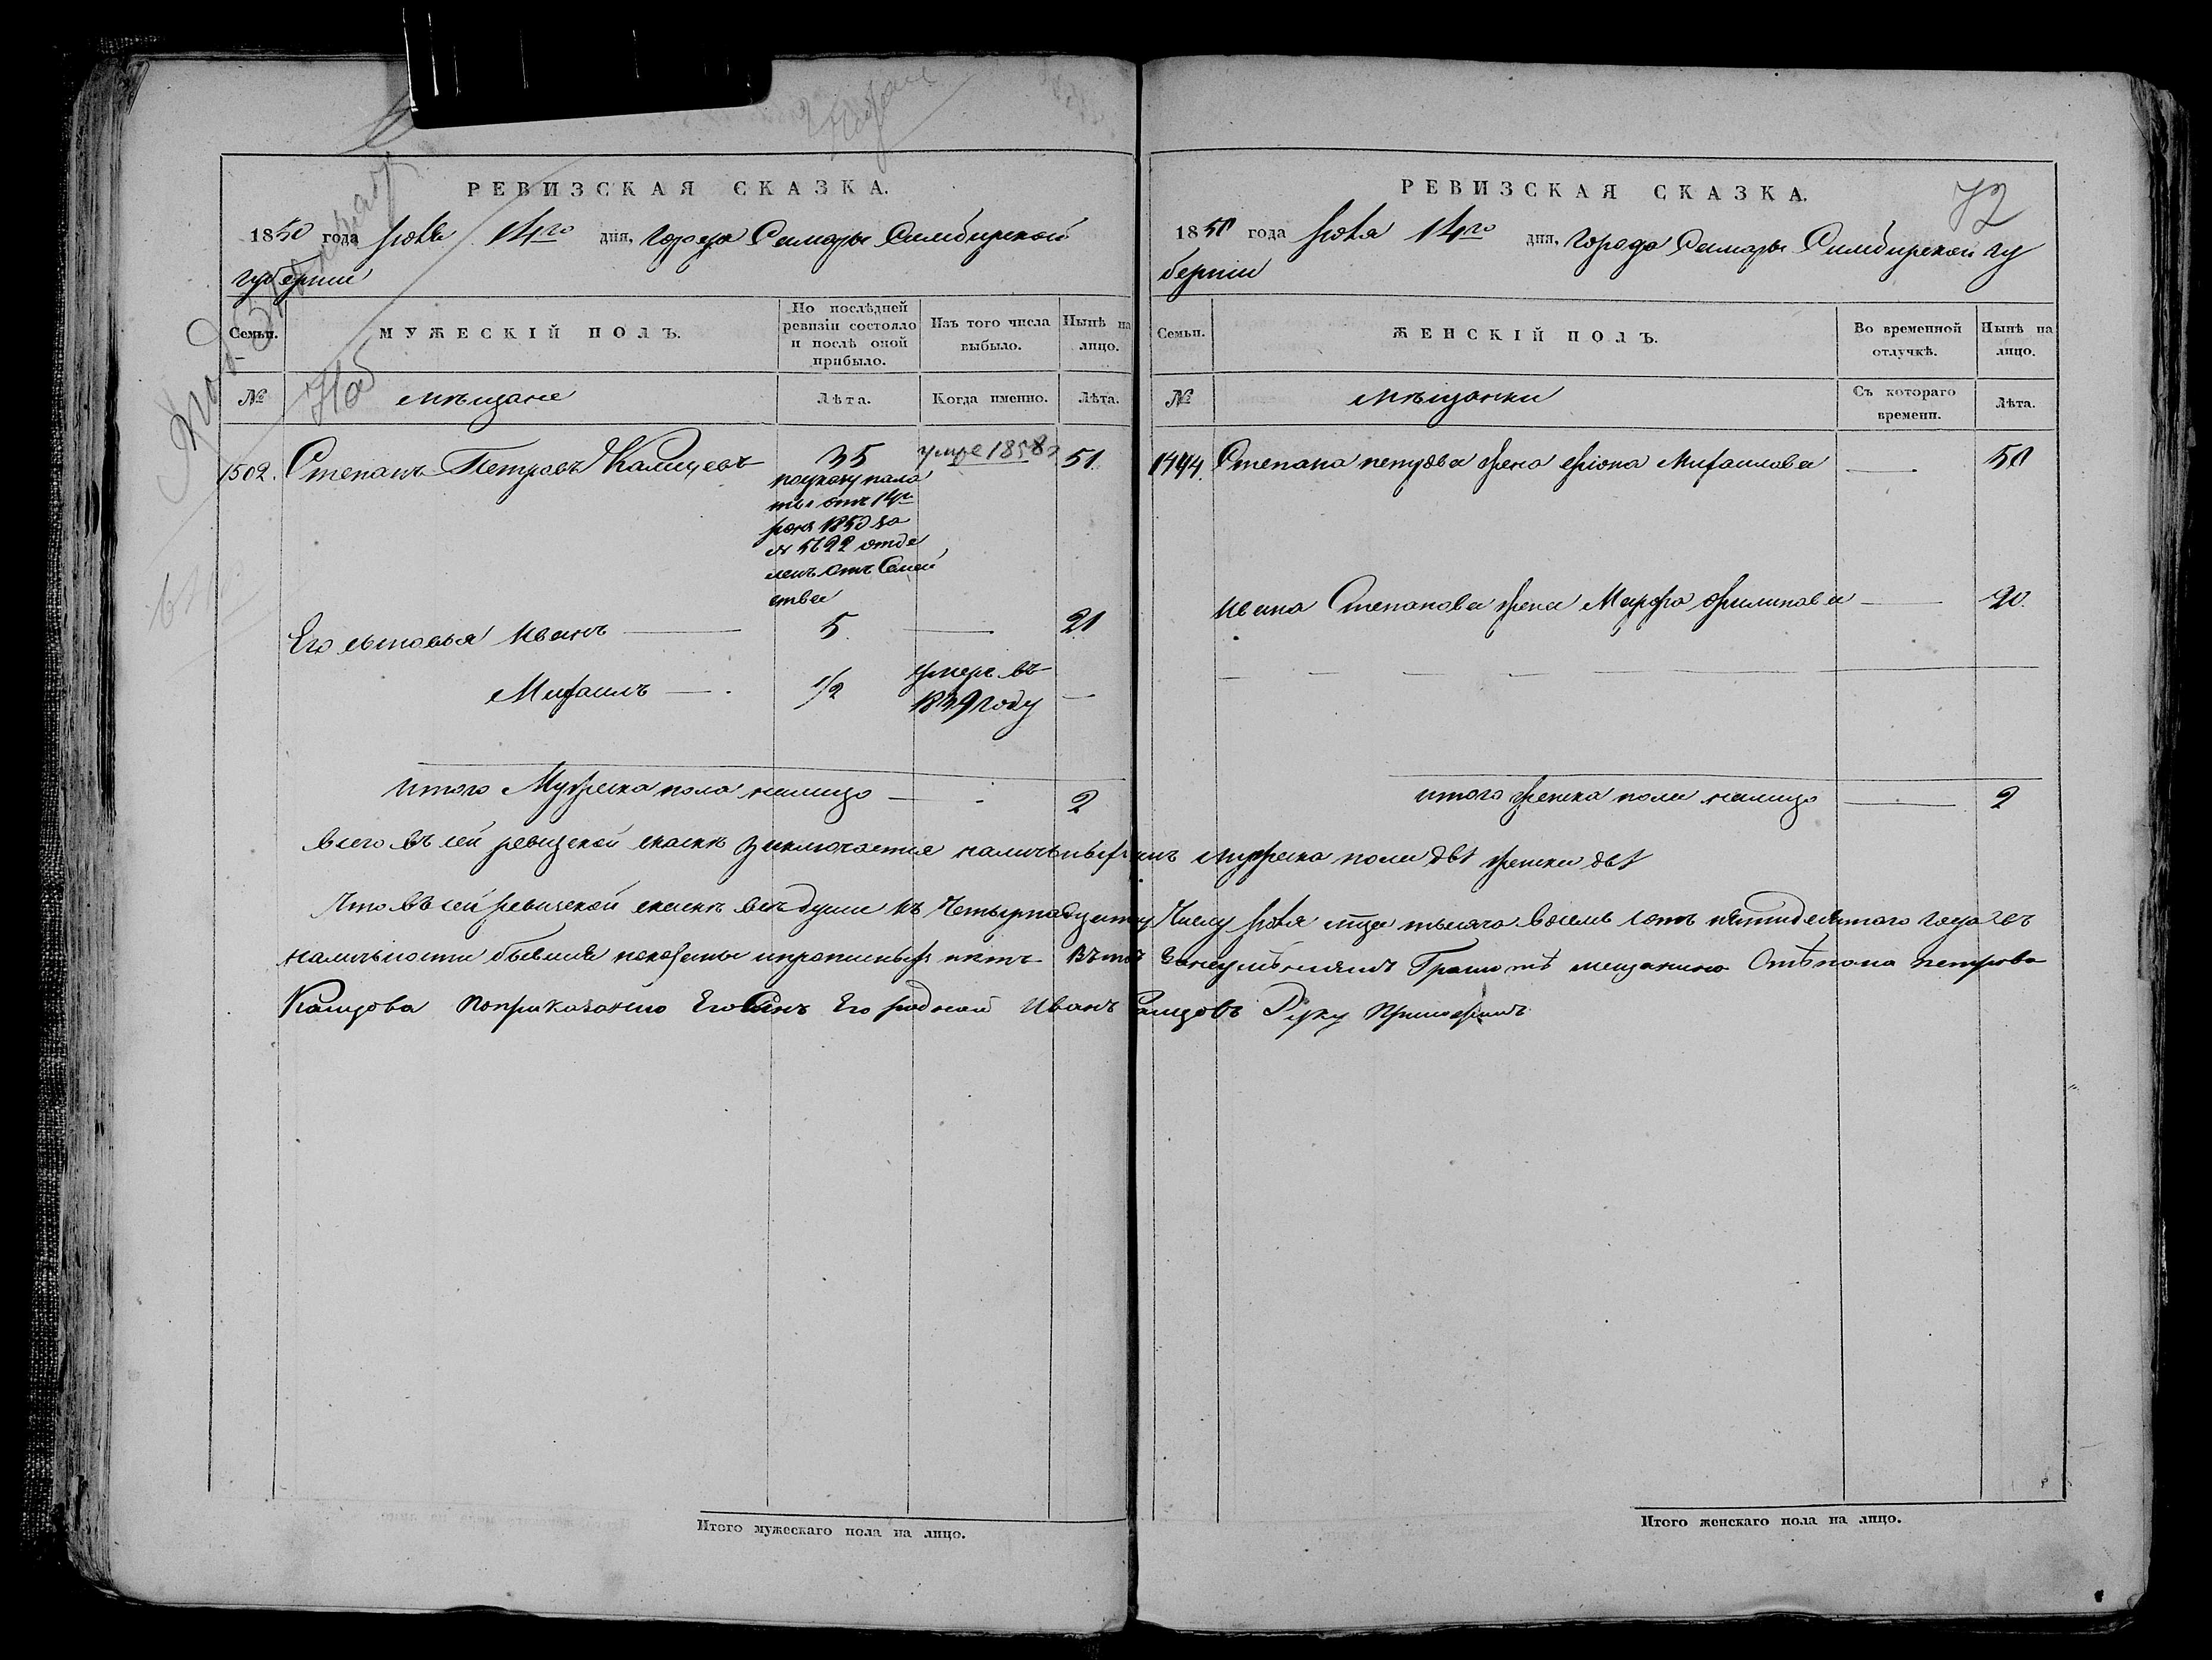 РЕВИЗСКАЯ СКАЗКА.
1850 года Июля 14го дня, города Самары Симбирской
губернiи
Семьи. МУЖЕСКIЙ ПОЛЪ. По послѣдней ревизiи состояло и послѣ оной прибыло. Изъ того числа выбыло. Нынѣ на лицо.
№ мѣщане Лѣта. Когда именно. Лѣта.
1502. Степанъ Петровъ 35 умре 1858 51
по указу пала
ты отъ 14го
1850 за
№ 5622 отде
ленъ отъ Семей
ства
Его сыновья Иванъ 5. 21
Михаилъ 1/2 умеръ въ
1839 году
итого Мужеска пола налицо 2
РЕВИЗСКАЯ СКАЗКА.
72
1850 года Июля 14го дня, города Самары Симбирской гу
бернiи
Семьи. ЖЕНСКIЙ ПОЛЪ. Во временной отлучкѣ. Нынѣ на лицо.
№ мѣщанки Съ котораго времени. Лѣта.
1494. Степана петрова жена Михаилова 50
Ивана Степанова жена Марфа Филипова 20.
итого женска пола налицо 2
Всего въ сей ревизской скаскѣ заключается наличныхъ мужеска пола двѣ женска двѣ
Что въ сей ревизской скаскѣ всѣ души къ Четырнадцатому Числу Июля мца тысяча восемь сотъ пятидесятаго года въ
наличности бывшiя показаны и прописныхъ нѣтъ Въ томъ Занеумѣнiемъ Грамотѣ мещанина Стѣпана петрова
поприказанию Его Сынъ Его родной Иванъ Руку Приложилъ
Итого мужескаго пола на лицо.
Итого женскаго пола на лицо.